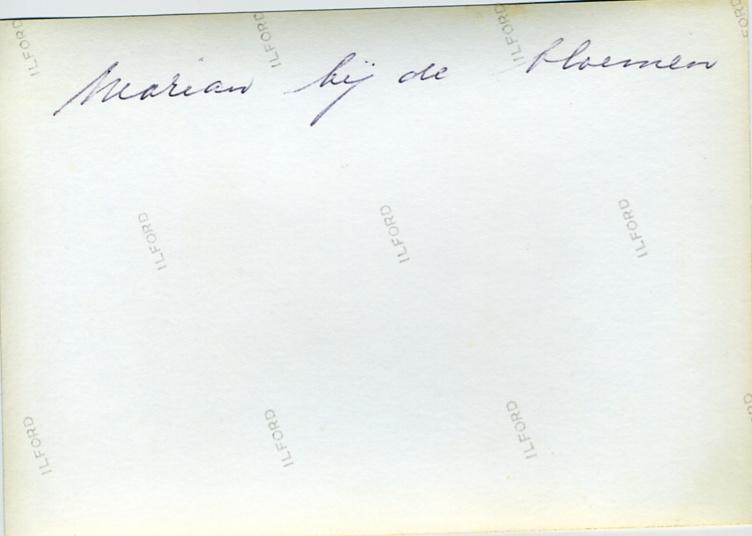 ILFORD ILFORD ILFORD ILFORD
Marian bij de bloemen
ILFORD ILFORD ILFORD
ILFORD ILFORD ILFORD